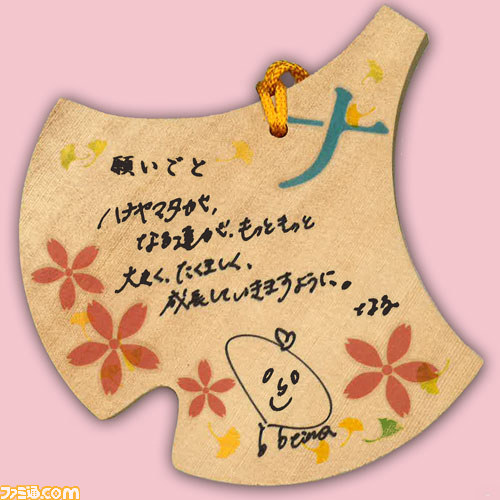 ナ
願いごと
ハナヤマタが、
なる達が、もっともっと
大きく、たくましく、
成長していきますように。
ファミ通.com